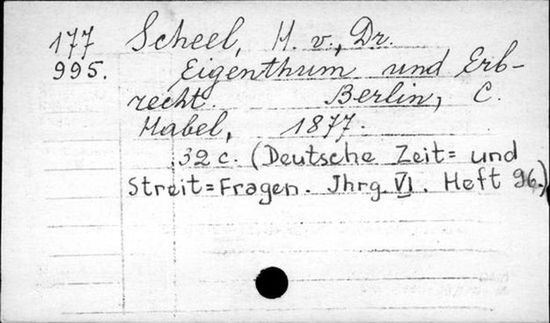 177 Scheel, H. v., Dr.
995. Eigenthum und Erb-
recht. Berlin, C.
Habel, 1877.
32 c. (Deutsche Zeit= und
Streit=Fragen. Jhrg. VI. Heft 96.)